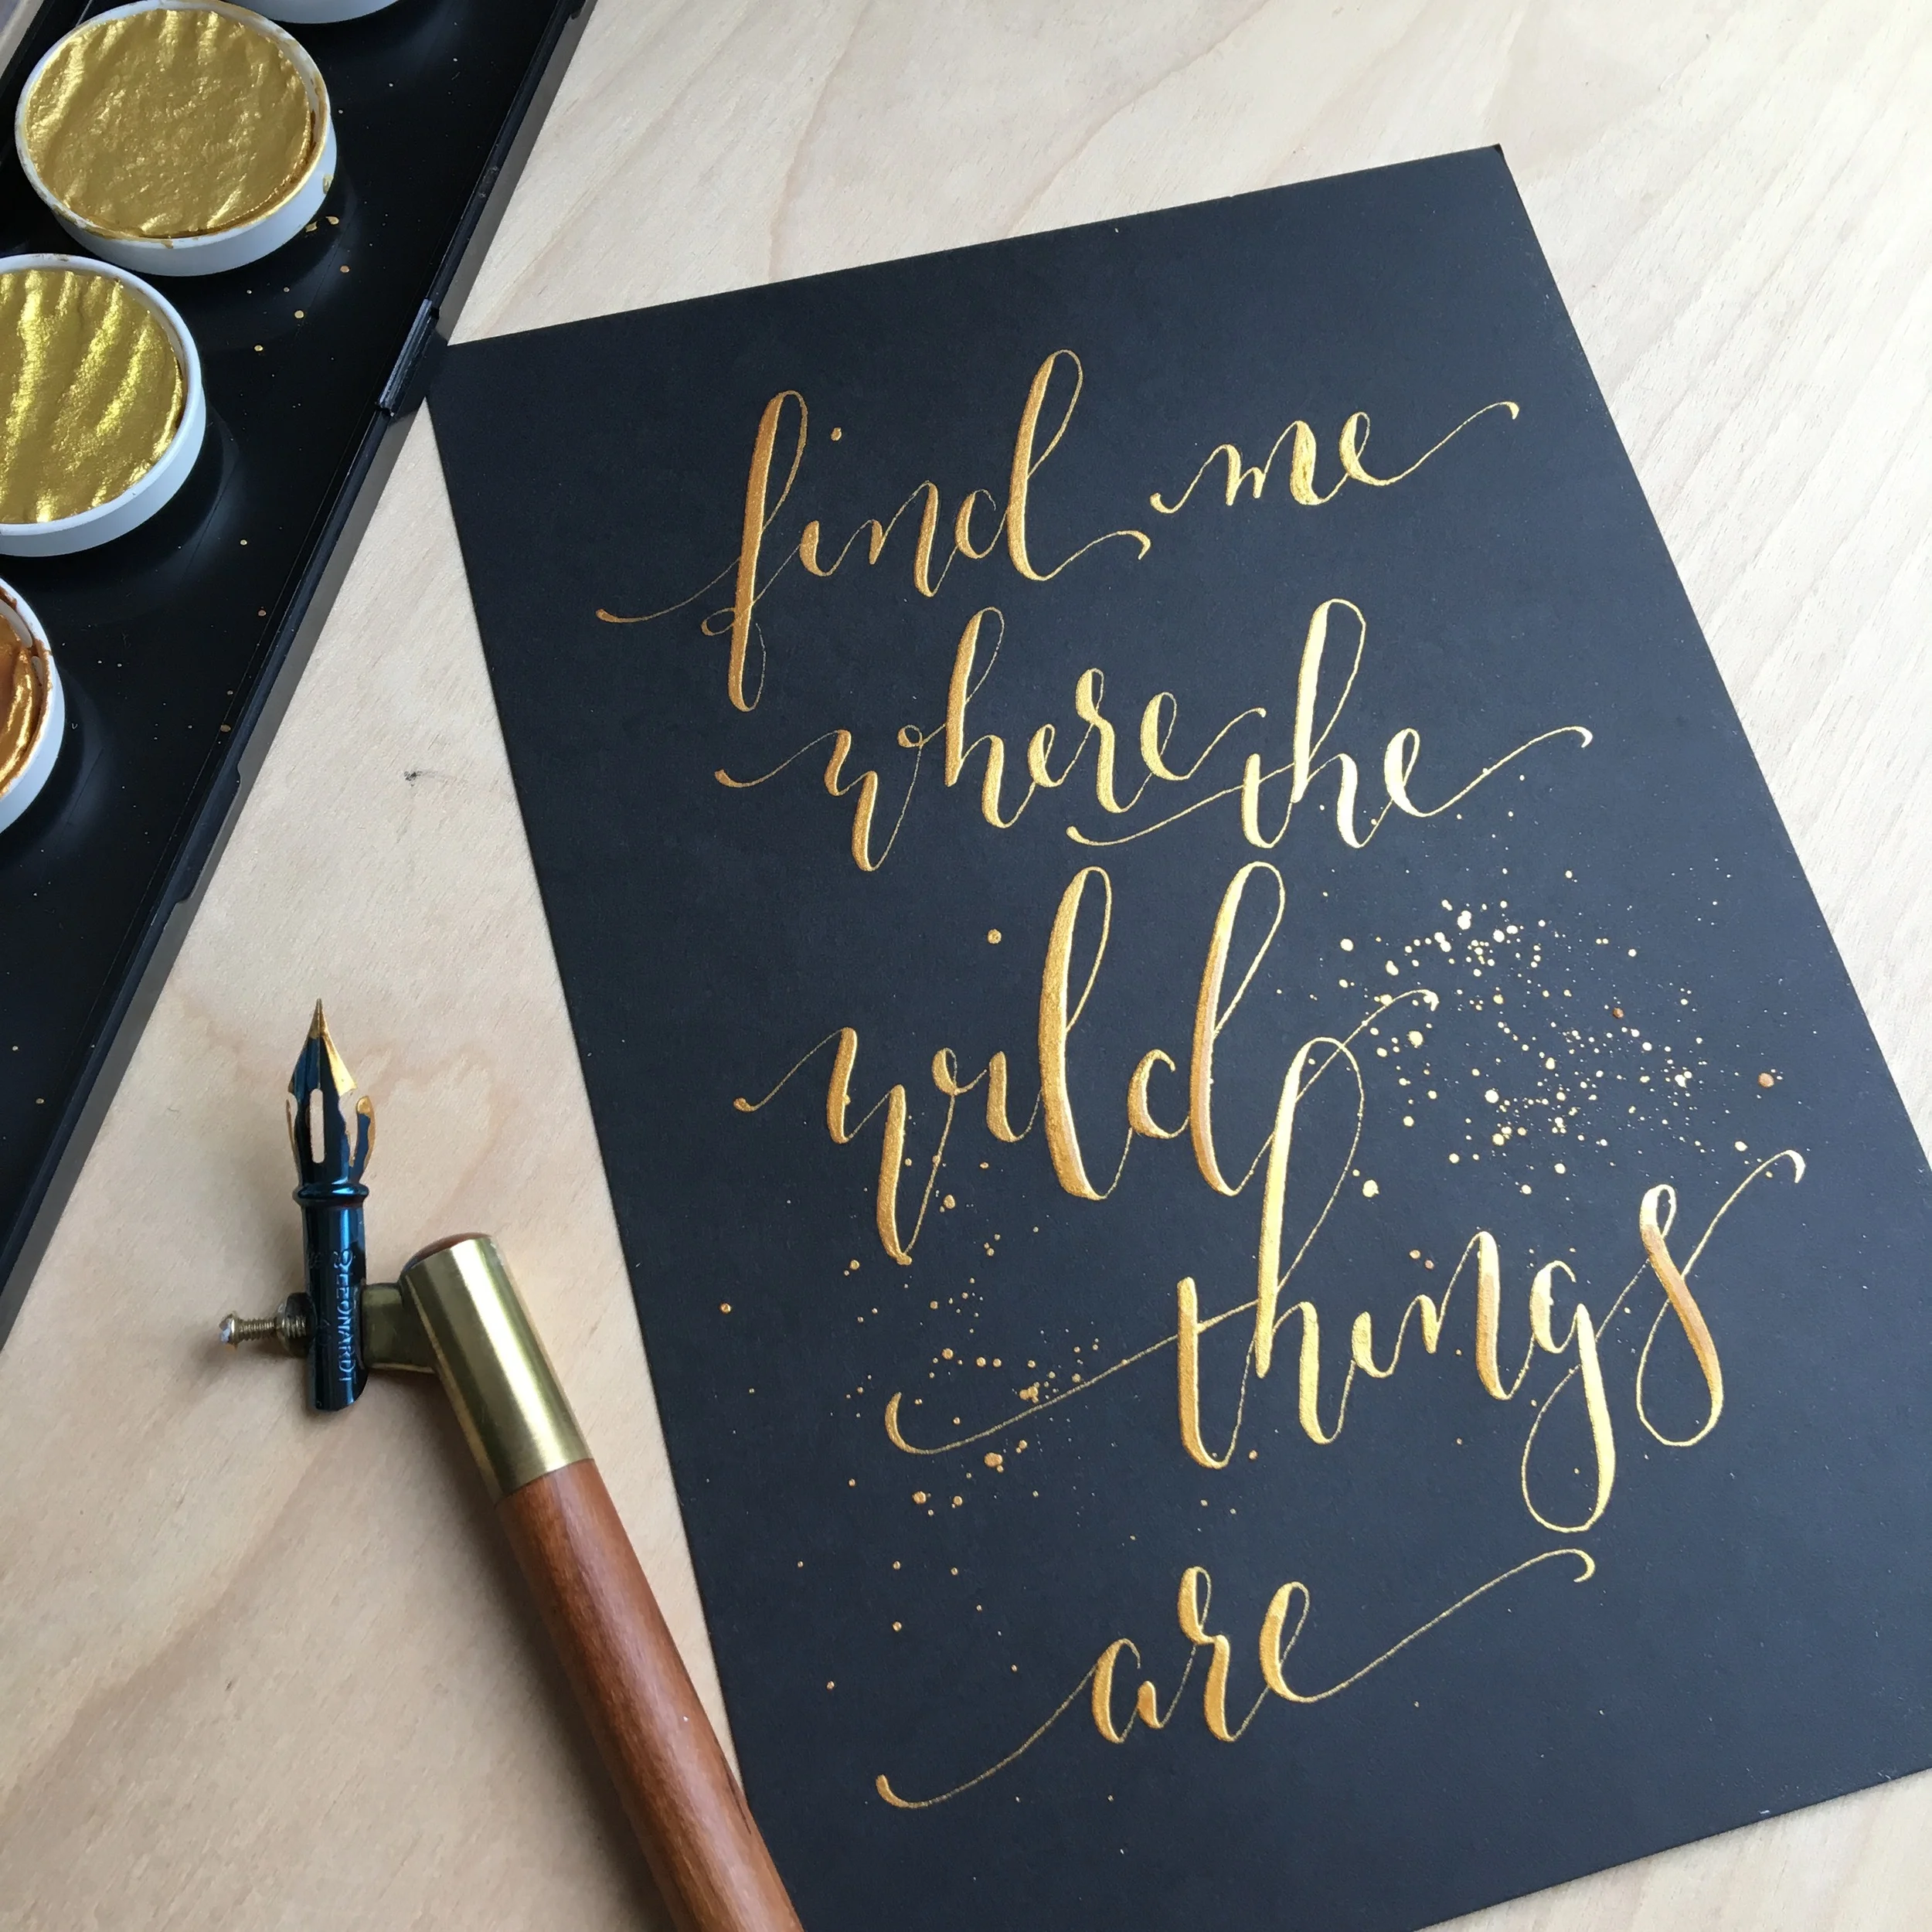 find me
where the
wild
things
are
LEONARDT